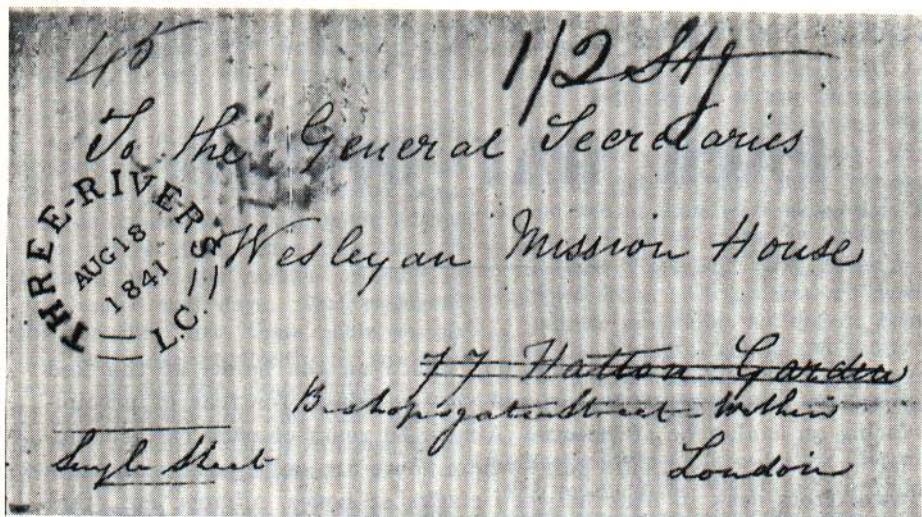 45
1/2 Stg
To the General Secretaries
THREE-RIVERS L.C.
AUG 18
1841
Wesleyan Mission House
77 Hatton Garden
Bishopsgate Street Within
London
Single Sheet